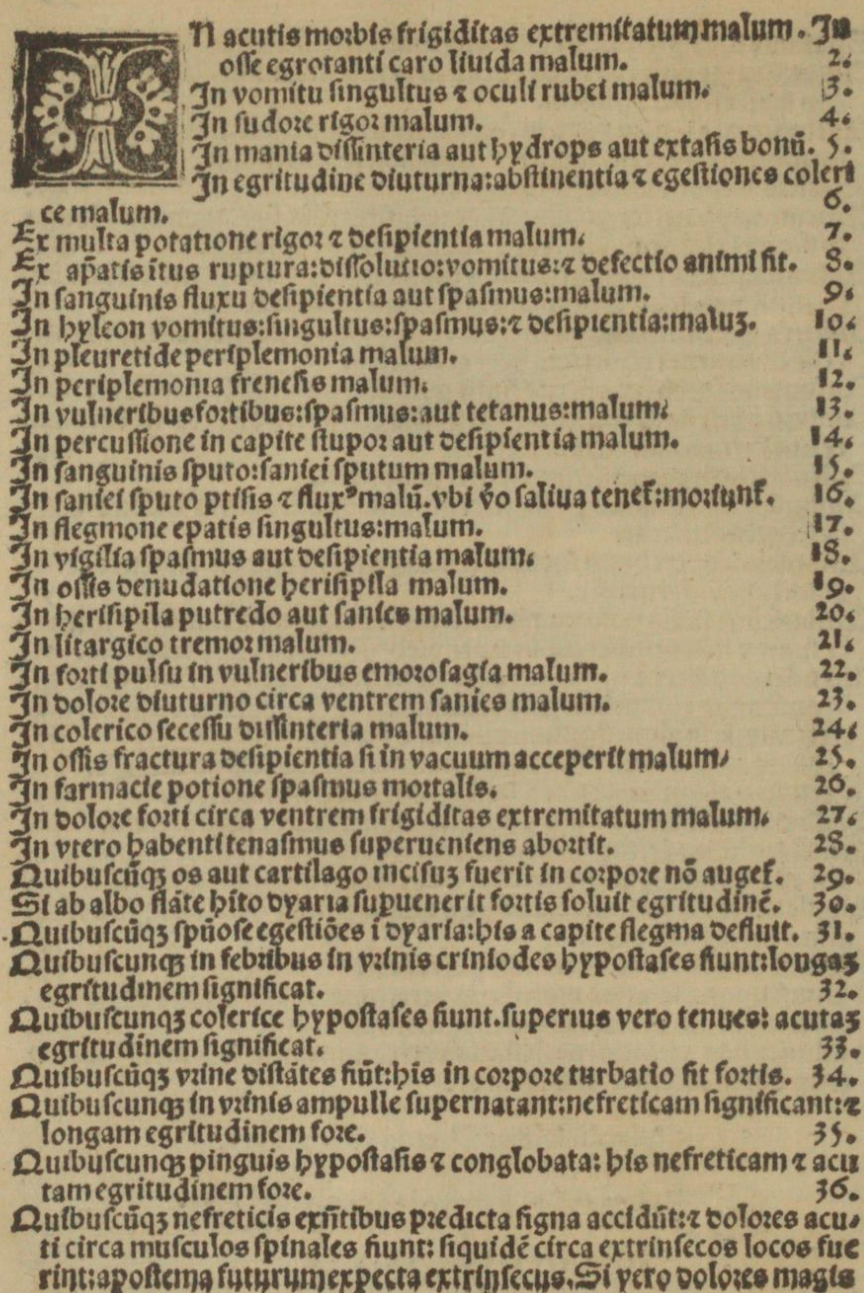 IN acutis morbis frigiditas extremitatum malum. In
osse egrotanti caro liuida malum. 2.
In vomitu singultus ⁊ oculi rubei malum. 3.
In sudore rigor malum. 4.
In mania dissinteria aut hydrops aut extasis bonū. 5.
In egritudine diuturna: abstinentia ⁊ egestiones coleri
ce malum. 6.
Ex multa potatione rigor ⁊ desipientia malum. 7.
Ex ap̄atis itus ruptura: dissolutio: vomitus: ⁊ defectio animi fit. 8.
In sanguinis fluxu desipientia aut spasmus: malum. 9.
In hyleon vomitus: singultus: spasmus: ⁊ desipientia: maluꝫ. 10.
In pleuretide periplemonia malum. 11.
In periplemonia frenesis malum. 12.
In vulneribus fortibus: spasmus: aut tetanus: malum. 13.
In percussione in capite stupor aut desipientia malum. 14.
In sanguinis sputo: saniei sputum malum. 15.
In saniei sputo ptisis ⁊ fluxꝰ malū. vbi v̄o saliua tenet᷑: moriunt᷑. 16.
In flegmone epatis singultus: malum. 17.
In vigilia spasmus aut desipientia malum. 18.
In ossis denudatione herisipila malum. 19.
In herisipila putredo aut sanies malum. 20.
In litargico tremor malum. 21.
In forti pulsu in vulneribus emorosagia malum. 22.
In dolore diuturno circa ventrem sanies malum. 23.
In colerico secessu dissinteria malum. 24.
In ossis fractura desipientia si in vacuum acceperit malum. 25.
In farmacie potione spasmus mortalis. 26.
In dolore forti circa ventrem frigiditas extremitatum malum. 27.
In vtero habenti tenasmus superueniens abortit. 28.
Quibuscūqꝫ os aut cartilago incisuꝫ fuerit in corpore nō auget᷑. 29.
Si ab albo flāte hito dyaria supuenerit fortis soluit egritudinē. 30.
Quibuscūqꝫ spūose egestiōes i dyaria: his a capite flegma defluit. 31.
Quibuscunqꝫ in febribus in vrinis criniodes hypostases fiunt: longaꝫ
egritudinem significat. 32.
Quibuscunqꝫ colerice hypostases fiunt. superius vero tenues: acutaꝫ
egritudinem significat. 33.
Quibuscūqꝫ vrine distātes fiūt: his in corpore turbatio fit fortis. 34.
Quibuscunqꝫ in vrinis ampulle supernatant: nefreticam significant: ⁊
longam egritudinem fore. 35.
Quibuscunqꝫ pinguis hypostasis ⁊ conglobata: his nefreticam ⁊ acu
tam egritudinem fore. 36.
Quibuscūqꝫ nefreticis exn̄tibus predicta signa accidūt: ⁊ dolores acu-
ti circa musculos spinales fiunt: siquidē circa extrinsecos locos fue
rint: apostema futurum expecta extrinsecus. Si vero dolores magis